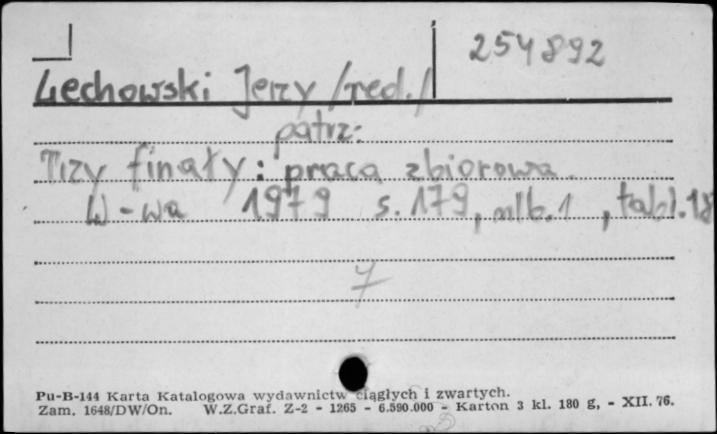 254892
Lechowski Jerzy /red./
patrz:
Trzy finały: praca zbiorowa.
W-wa 1979 s. 179, nlb. 1, tabl. 18
7
Pu-B-144 Karta Katalogowa wydawnictw ciągłych i zwartych.
Zam. 1648/DW/On. W.Z.Graf. Z-2 - 1265 - 6.590.000 - Karton 3 kl. 180 g, - XII. 76.